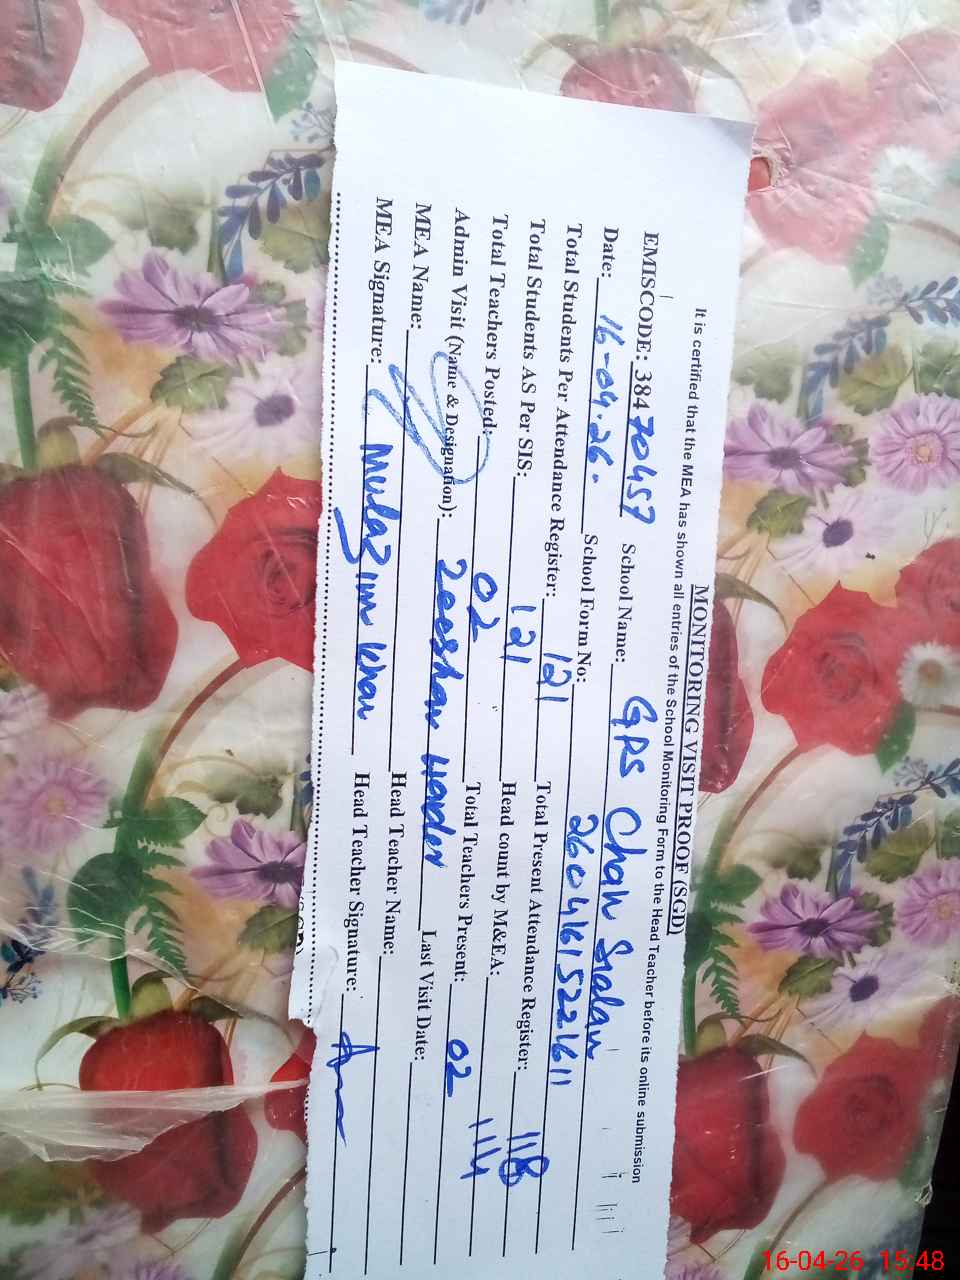 MONITORING VISIT PROOF (SGD)
It is certified that the MEA has shown all entries of the School Monitoring Form to the Head Teacher before its online submission
EMISCODE: 38470457 School Name: GPS Chak Sialan
Date: 16-04-26. School Form No: 26041615221611
Total Students Per Attendance Register: 121 Total Present Attendance Register: 118
Total Students AS Per SIS: 121 Head count by M&EA: 114
Total Teachers Posted: 02 Total Teachers Present: 02
Admin Visit (Name & Designation): Last Visit Date:
MEA Name: Zeeshan Haider Head Teacher Name: 
MEA Signature: Mulazim Khan Head Teacher Signature:
16-04-26 15:48